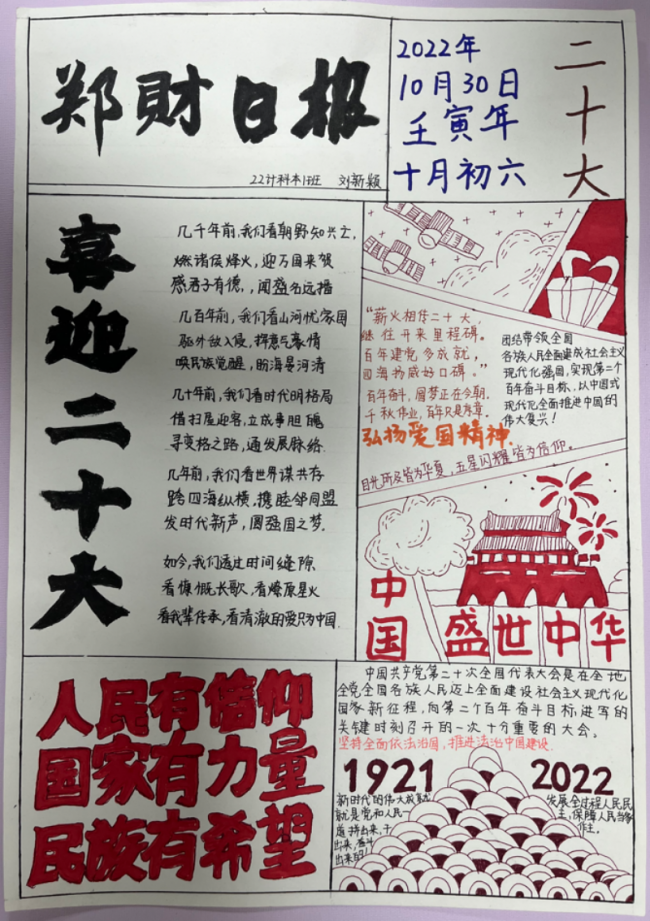 郑财日报
22计科本1班 刘新颖
2022年
10月30日
壬寅年
十月初六
二十大
喜迎二十大
几千年前,我们看朝野知兴立,
燃诸侯烽火,迎万国来贺
感君子有德,,闻盛名远播
几百年前,我们看山河忧家国
驱外敌入侵,挥意气豪情
唤民族觉醒,盼海晏河清
几十年前,我们看时代明格局
借扫屋迎客,立成事胆魄
寻变格之路,通发展脉络.
几年前,我们看世界谋共存
跨四海纵横,携睦邻同盟
发时代新声,圆强国之梦.
如今,我们透过时间缝隙
看慷慨长歌,看燎原星火
看我辈传承,看清澈的爱只为中国.
“薪火相传二十大,
继往开来里程碑。
百年建党多成就,
四海扬威好口碑。”
百年奋斗,圆梦正在今朝.
千秋伟业,百年只是序章.
弘扬爱国精神.
团结带领全国
各族人民全面建成社会主义
现代化强国,实现第二个
百年奋斗目标,以中国式
现代化全面推进中国的
伟大复兴!
目光所及皆为华夏,五星闪耀皆为信仰。
中国
盛世中华
人民有信仰
国家有力量
民族有希望
中国共产党第二十次全国代表大会是在全地
全党全国各族人民迈上全面建设社会主义现代化
国家新征程,向第二个百年奋斗目标进军的
关键时刻召开的一次十分重要的大会。
坚持全面依法治国,推进法治中国建设.
1921
2022
新时代的伟大成就
就是党和人民一
道拼出来,干
出来,奋斗
出来的!
发展全过程人民民
主,保障人民当家
作主。